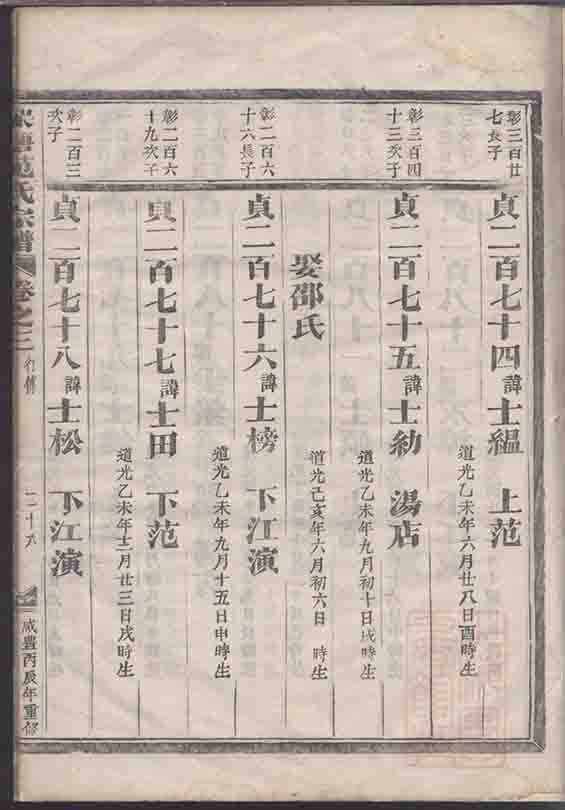 彰三百廿
七長子
貞二百七十四諱士縕 上范
道光乙未年六月廿八日酉時生
彰三百四
十三次子
貞二百七十五諱士紨 湯店
道光乙未年九月初十日戌時生
娶邵氏
道光己亥年六月初六日 時生
彰二百六
十六長子
貞二百七十六諱士榜 下江演
道光乙未年九月十五日申時生
彰二百六
十九次子
貞二百七十七諱士田 下范
道光乙未年十二月廿三日戌時生
彰二百三
次子
貞二百七十八諱士松 下江演
范氏宗譜 卷之三 行傳
二十九
咸豐丙辰年重修